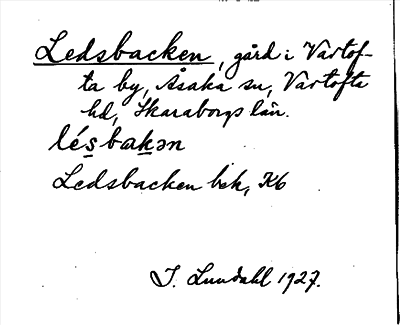 Ledsbacken, gård i Vartof-
ta by, Åsaka sn, Vartofta
hd, Skaraborgs län.
lésbakən
Ledsbacken bsk, Kb
I. Lundahl 1927.